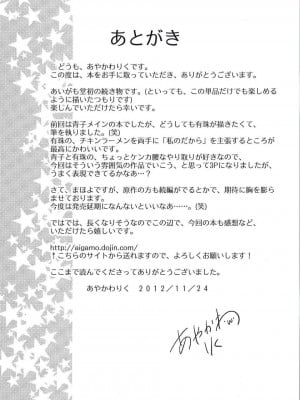 あとがき
どうも、あやかわりくです。
この度は、本をお手に取っていただき、ありがとうございます。
あいがも堂初の続き物です。(といっても、この単品だけでも楽しめる
ように描いたつもりです)
楽しんでいただけたら幸いです。
前回は青子メインの本でしたが、どうしても有珠が描きたくて、
筆を執りました。(笑)
有珠の、チキンラーメンを両手に「私のだから」を主張するところが
最高にかわいいです。
青子と有珠の、ちょっとケンカ腰なやり取りが好きなので、
今回はそういう雰囲気の作品でいこう、と思って3Pになりましたが、
うまく表現できてるかなあ…?
さて、まほよですが、原作の方も続編がでるとかで、期待に胸を膨ら
ませております。
今度は発売延期になんないといいなあ…。(笑)
ではでは、長くなりそうなのでこの辺で、今回の本も感想など、
いただけたら嬉しいです。
http://aigamo.dojin.com/
↑こちらのサイトから送れますので、よろしくお願いします!
ここまで読んでくださってありがとうございました。
あやかわりく 2012/11/24
あやかわ
りく